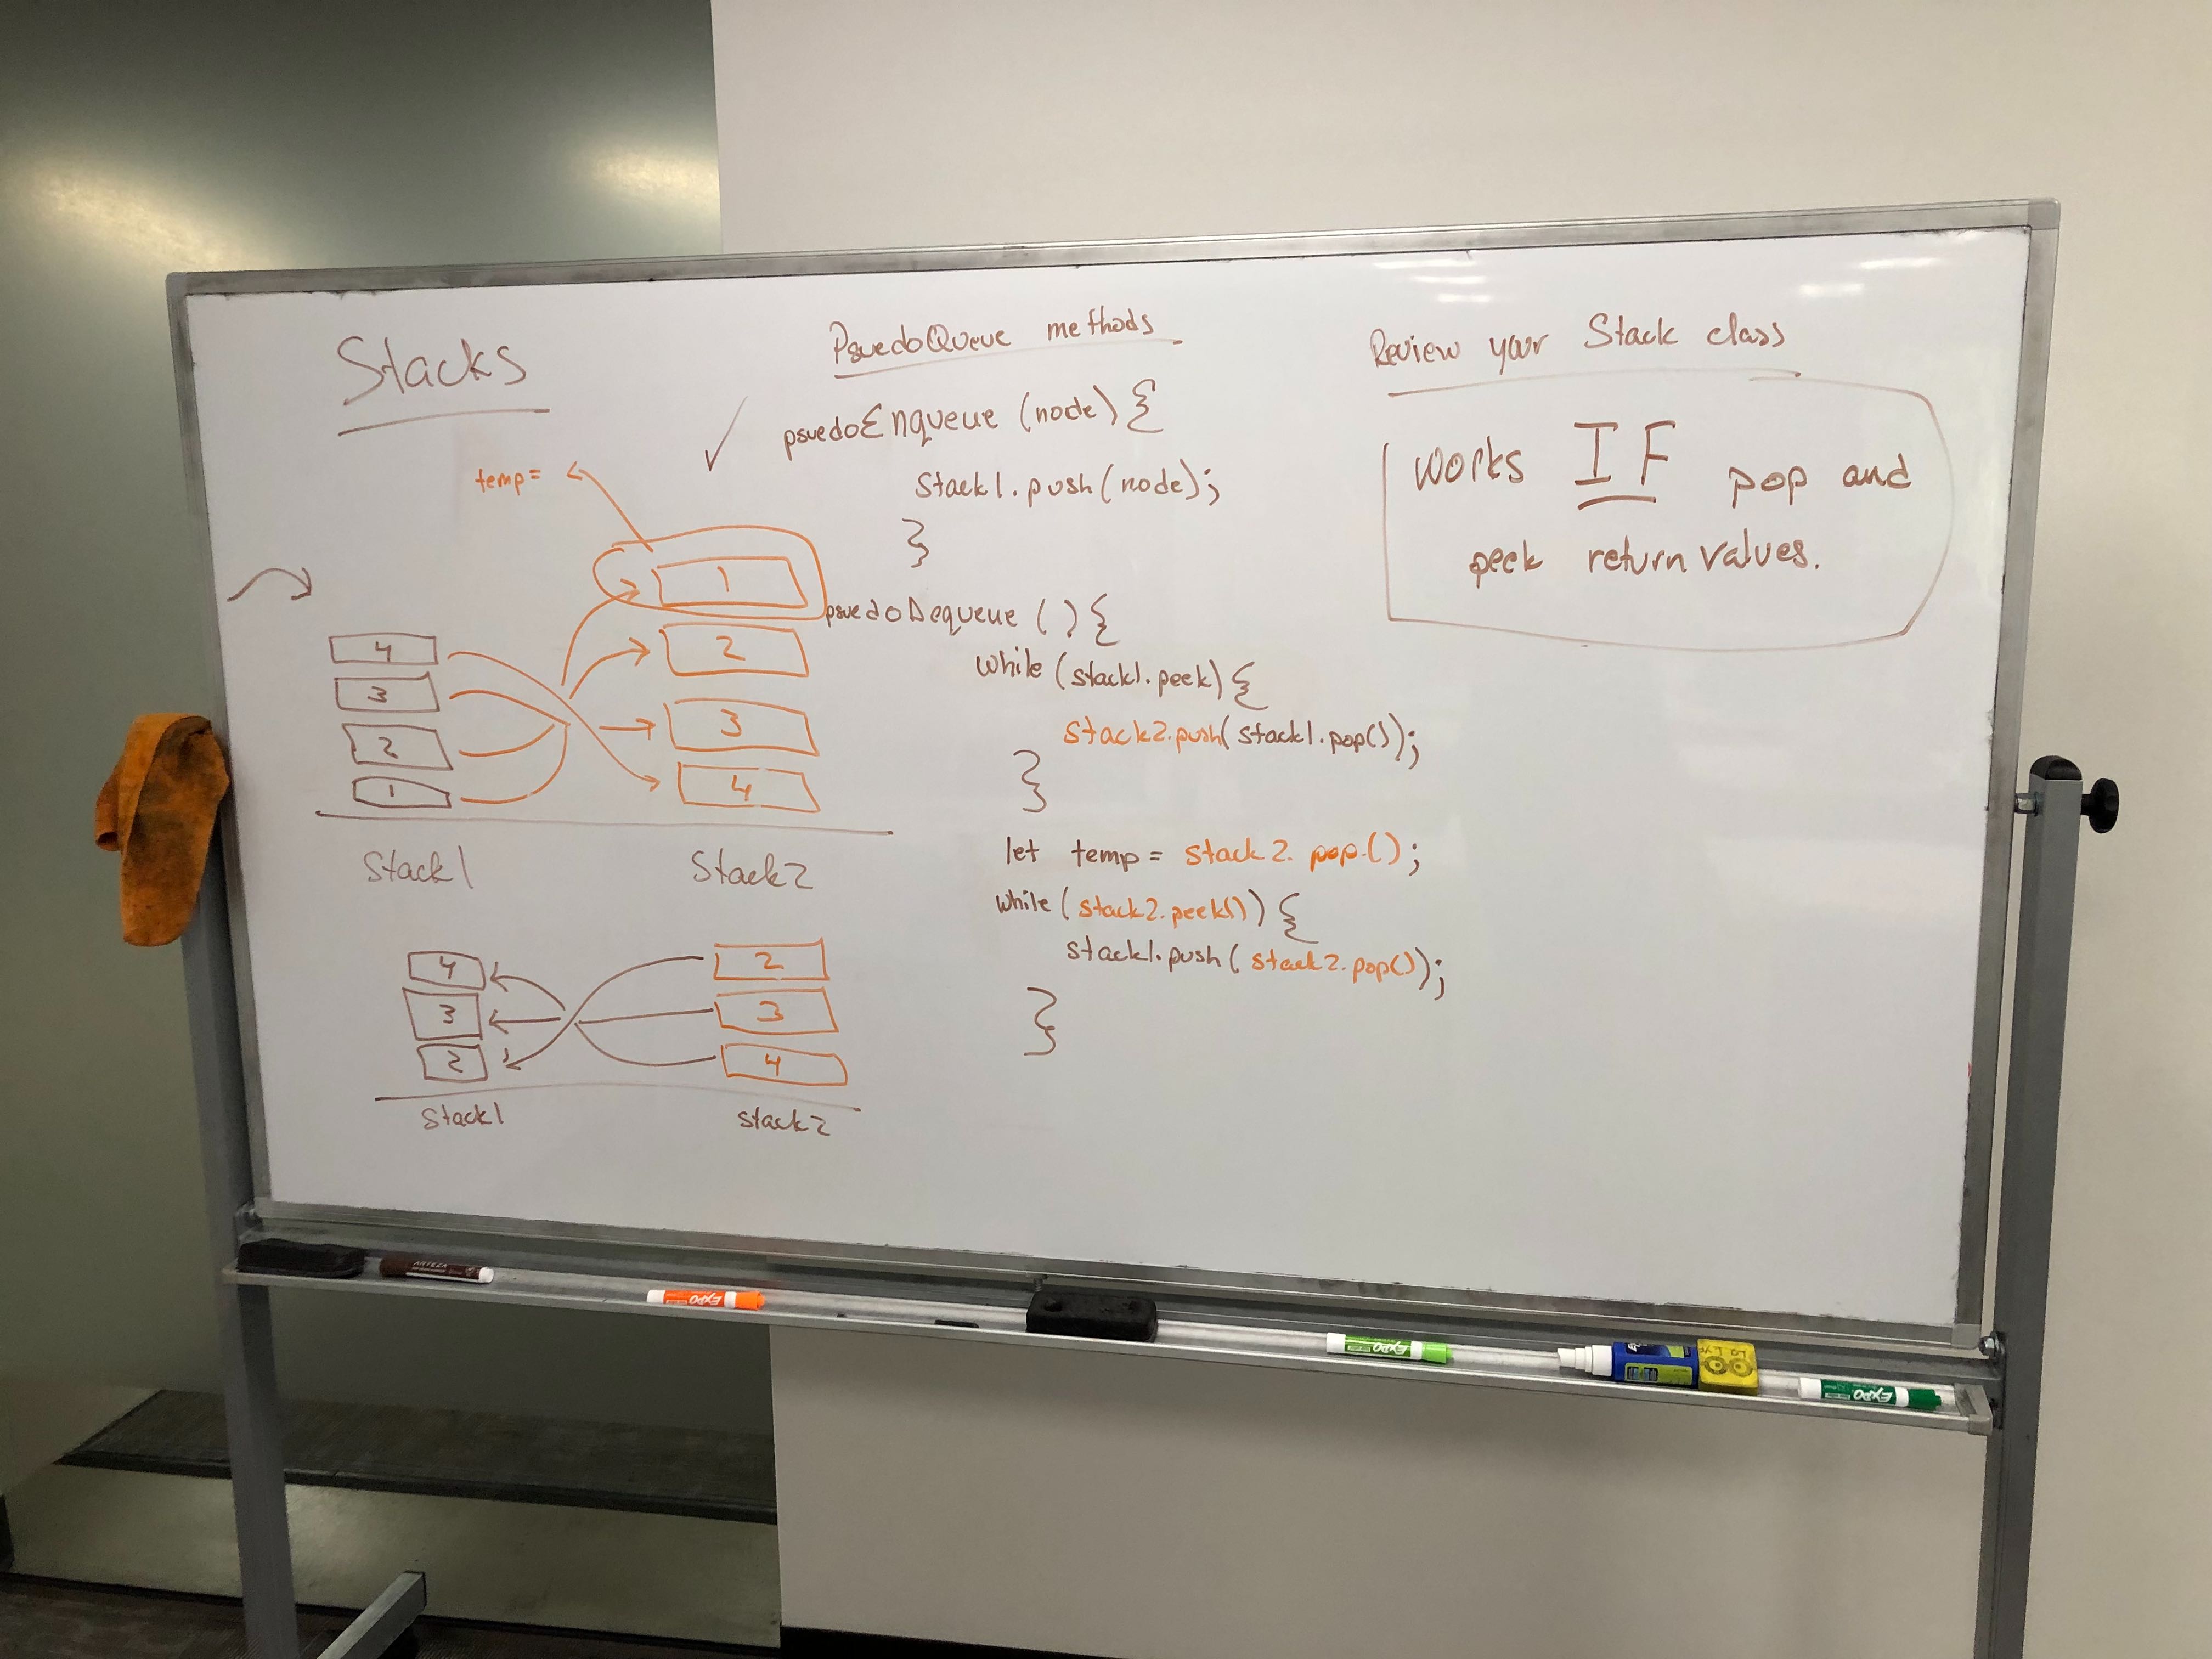 Stacks
temp=
1
2
3
4
4
3
2
1
Stack1
Stack2
4
3
2
2
3
4
Stack1
stack2
PsuedoQueue methods
psuedoEnqueue (node) {
Stack1.push(node);
}
psuedoDequeue () {
while (stack1.peek) {
stack2.push(stack1.pop());
}
let temp = stack2.pop();
while (stack2.peek()) {
stack1.push(stack2.pop());
}
Review your Stack class
works IF pop and
peek return values.
ARTEZA
EXPO
EXPO
EXPO